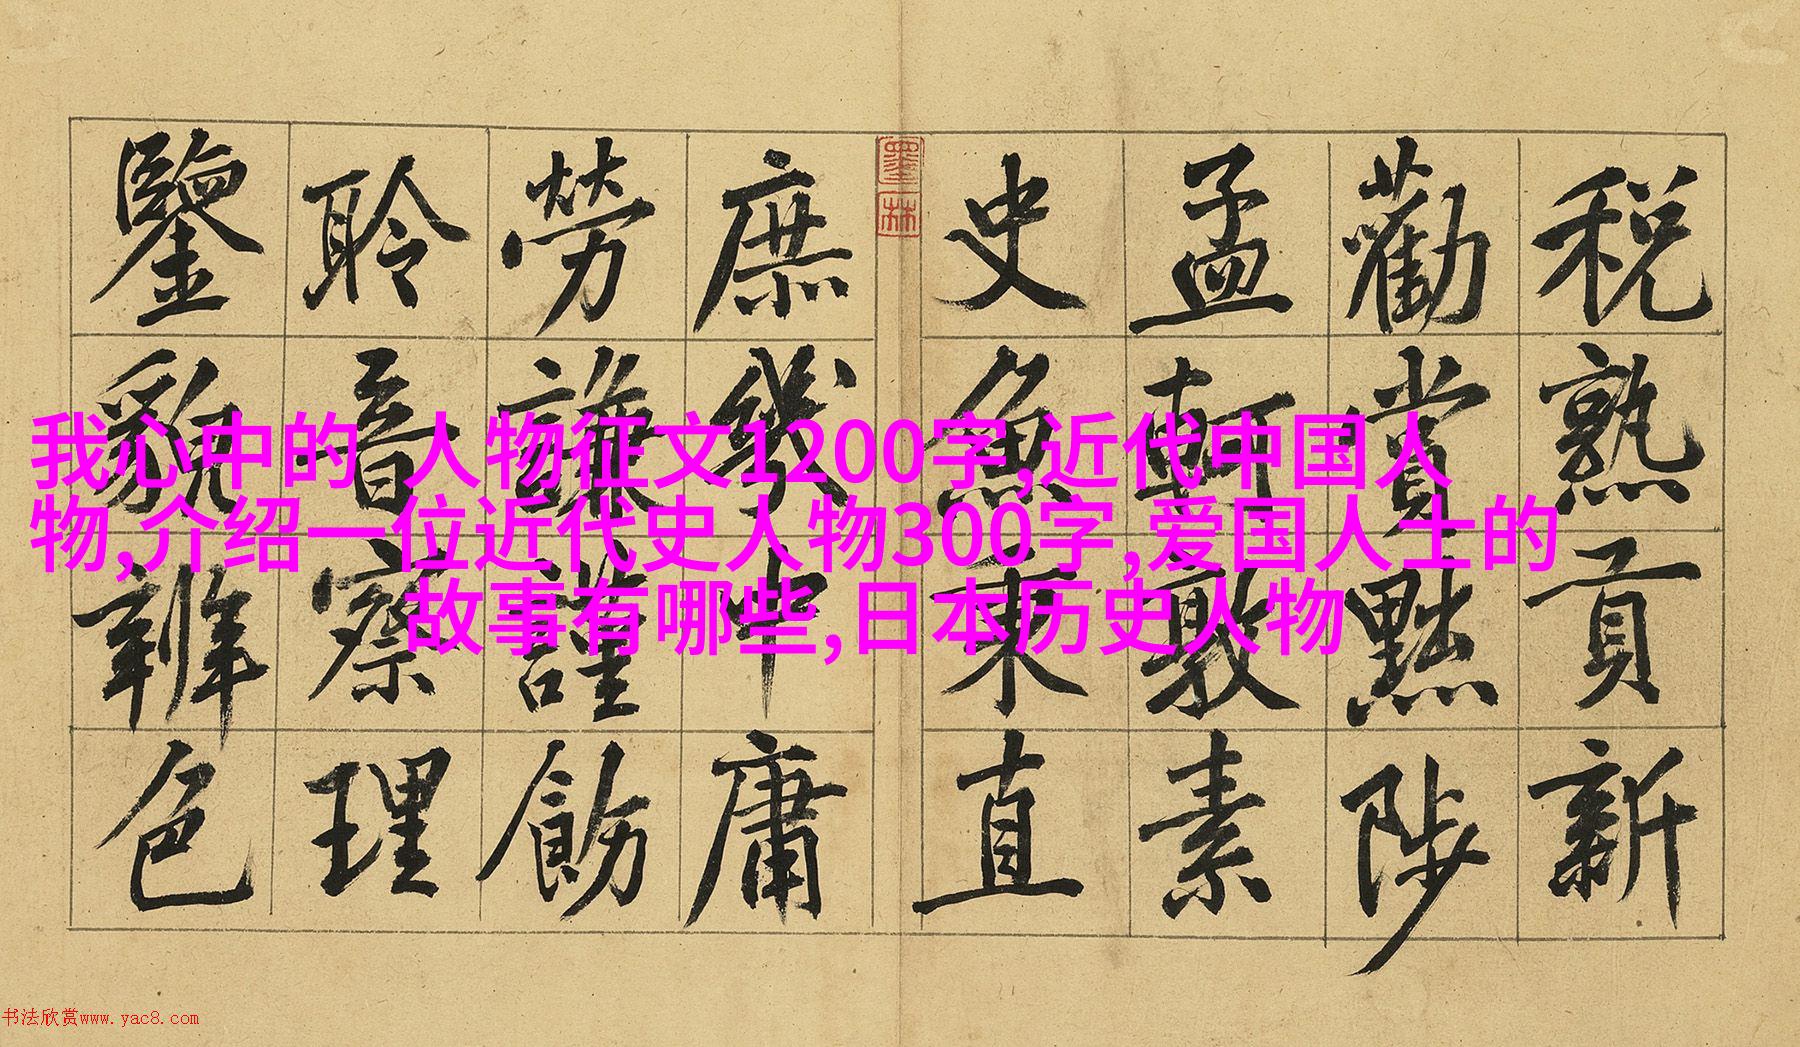 税熟貢新
勸賞黜陟
孟軻敦素
史魚秉直
庶幾中庸
勞謙謹飭
聆音察理
鑒貌辨色
墨林
我心中的 人物征文1200字,近代中国人
物,介绍一位近代史人物300字,爱国人士的
故事有哪些,日本历史人物
书法欣赏www.yac8.com